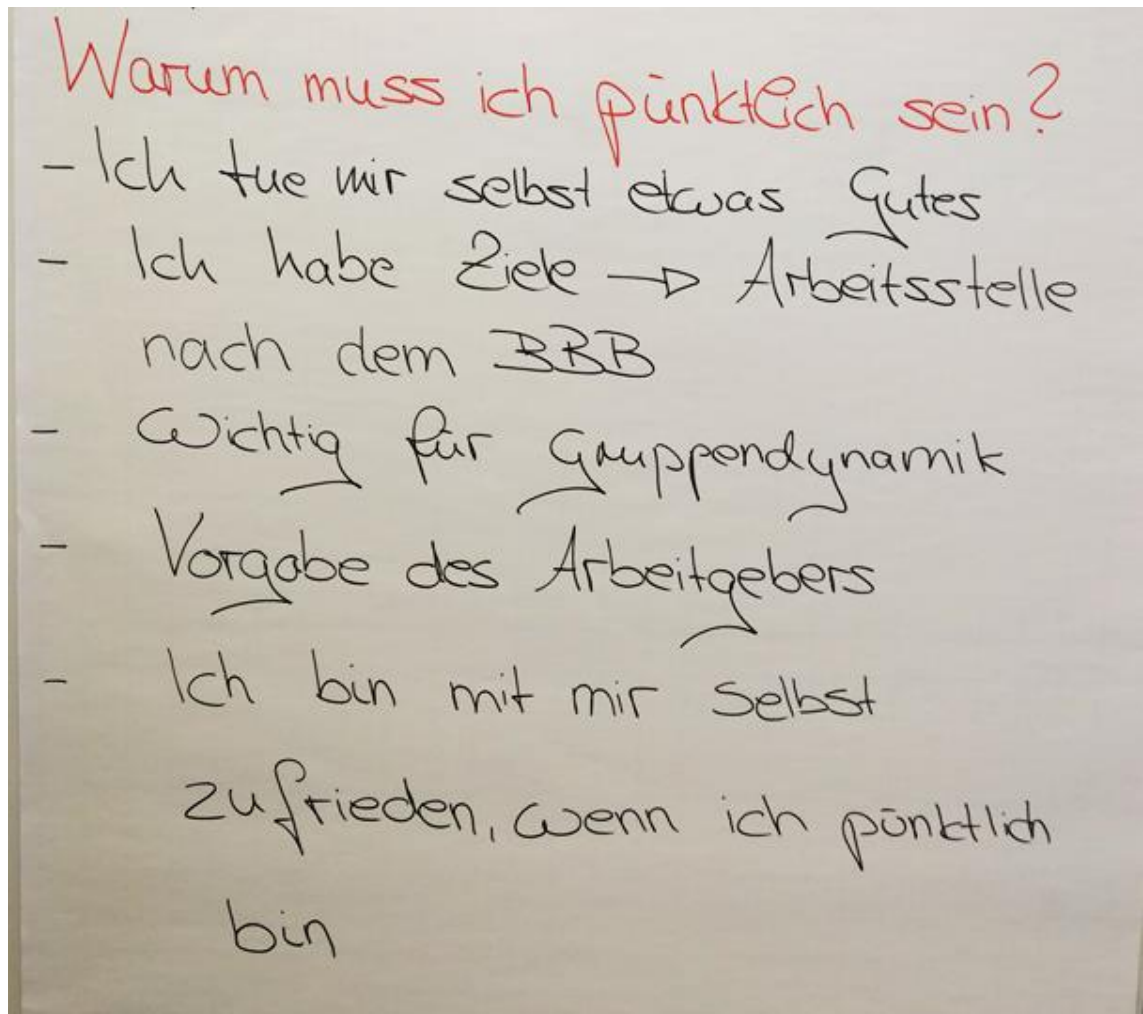 Warum muss ich pünktlich sein?
- Ich tue mir selbst etwas Gutes
- Ich habe Ziele → Arbeitsstelle
nach dem BBB
- Wichtig für Gruppendynamik
- Vorgabe des Arbeitgebers
- Ich bin mit mir selbst
zufrieden, wenn ich pünktlich
bin